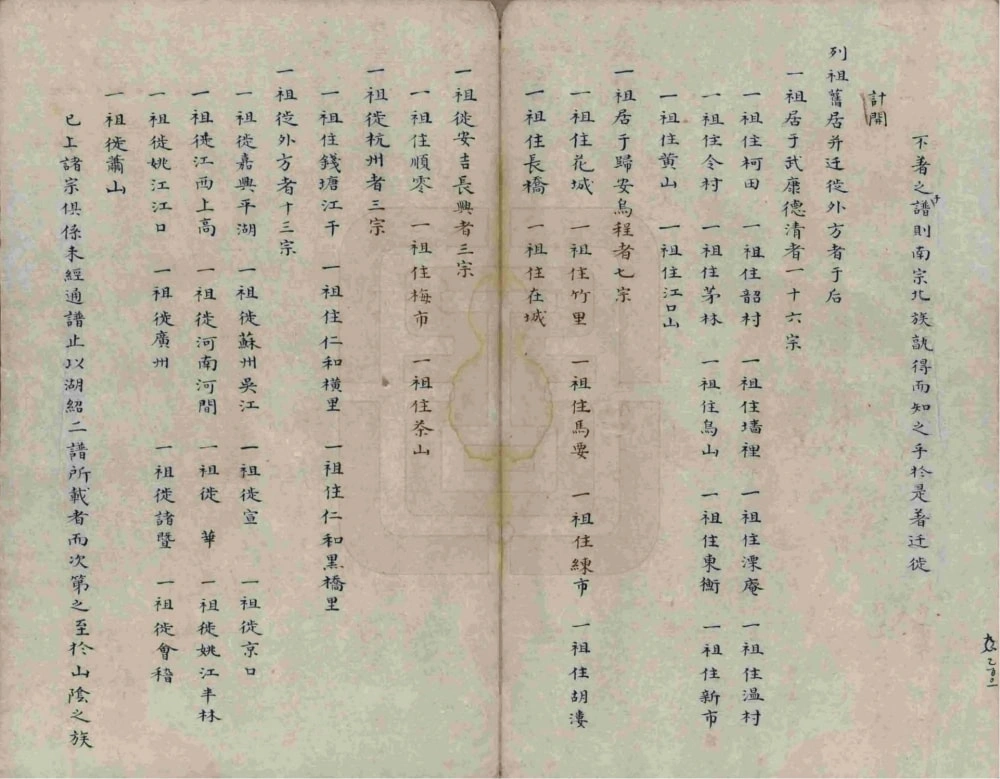 不著之譜則南宗北族孰得而知之乎於是著迁徙
計開
列祖舊居并迁徙外方者于后
一祖居于武康德清者一十六宗
一祖住柯田 一祖住韶村 一祖住墻裡 一祖住溧庵 一祖住溫村
一祖住令村 一祖住茅林 一祖住烏山 一祖住東衡 一祖住新市
一祖住黄山 一祖住江口山
一祖居于歸安烏程者七宗
一祖住花城 一祖住竹里 一祖住馬要 一祖住練市 一祖住胡溇
一祖住長橋 一祖住在城
一祖徙安吉長興者三宗
一祖住順零 一祖住梅市 一祖住茶山
一祖徙杭州者三宗
一祖住錢塘江干 一祖住仁和橫里 一祖住仁和黑橋里
一祖徙外方者十三宗
一祖徙嘉興平湖 一祖徙蘇州吳江 一祖徙宣 一祖徙京口
一祖徙江西上高 一祖徙河南河間 一祖徙 華 一祖徙姚江半林
一祖徙姚江江口 一祖徙廣州 一祖徙諸暨 一祖徙會稽
一祖徙蕭山
已上諸宗俱係未經通譜止以湖紹二譜所載者而次第之至於山陰之族